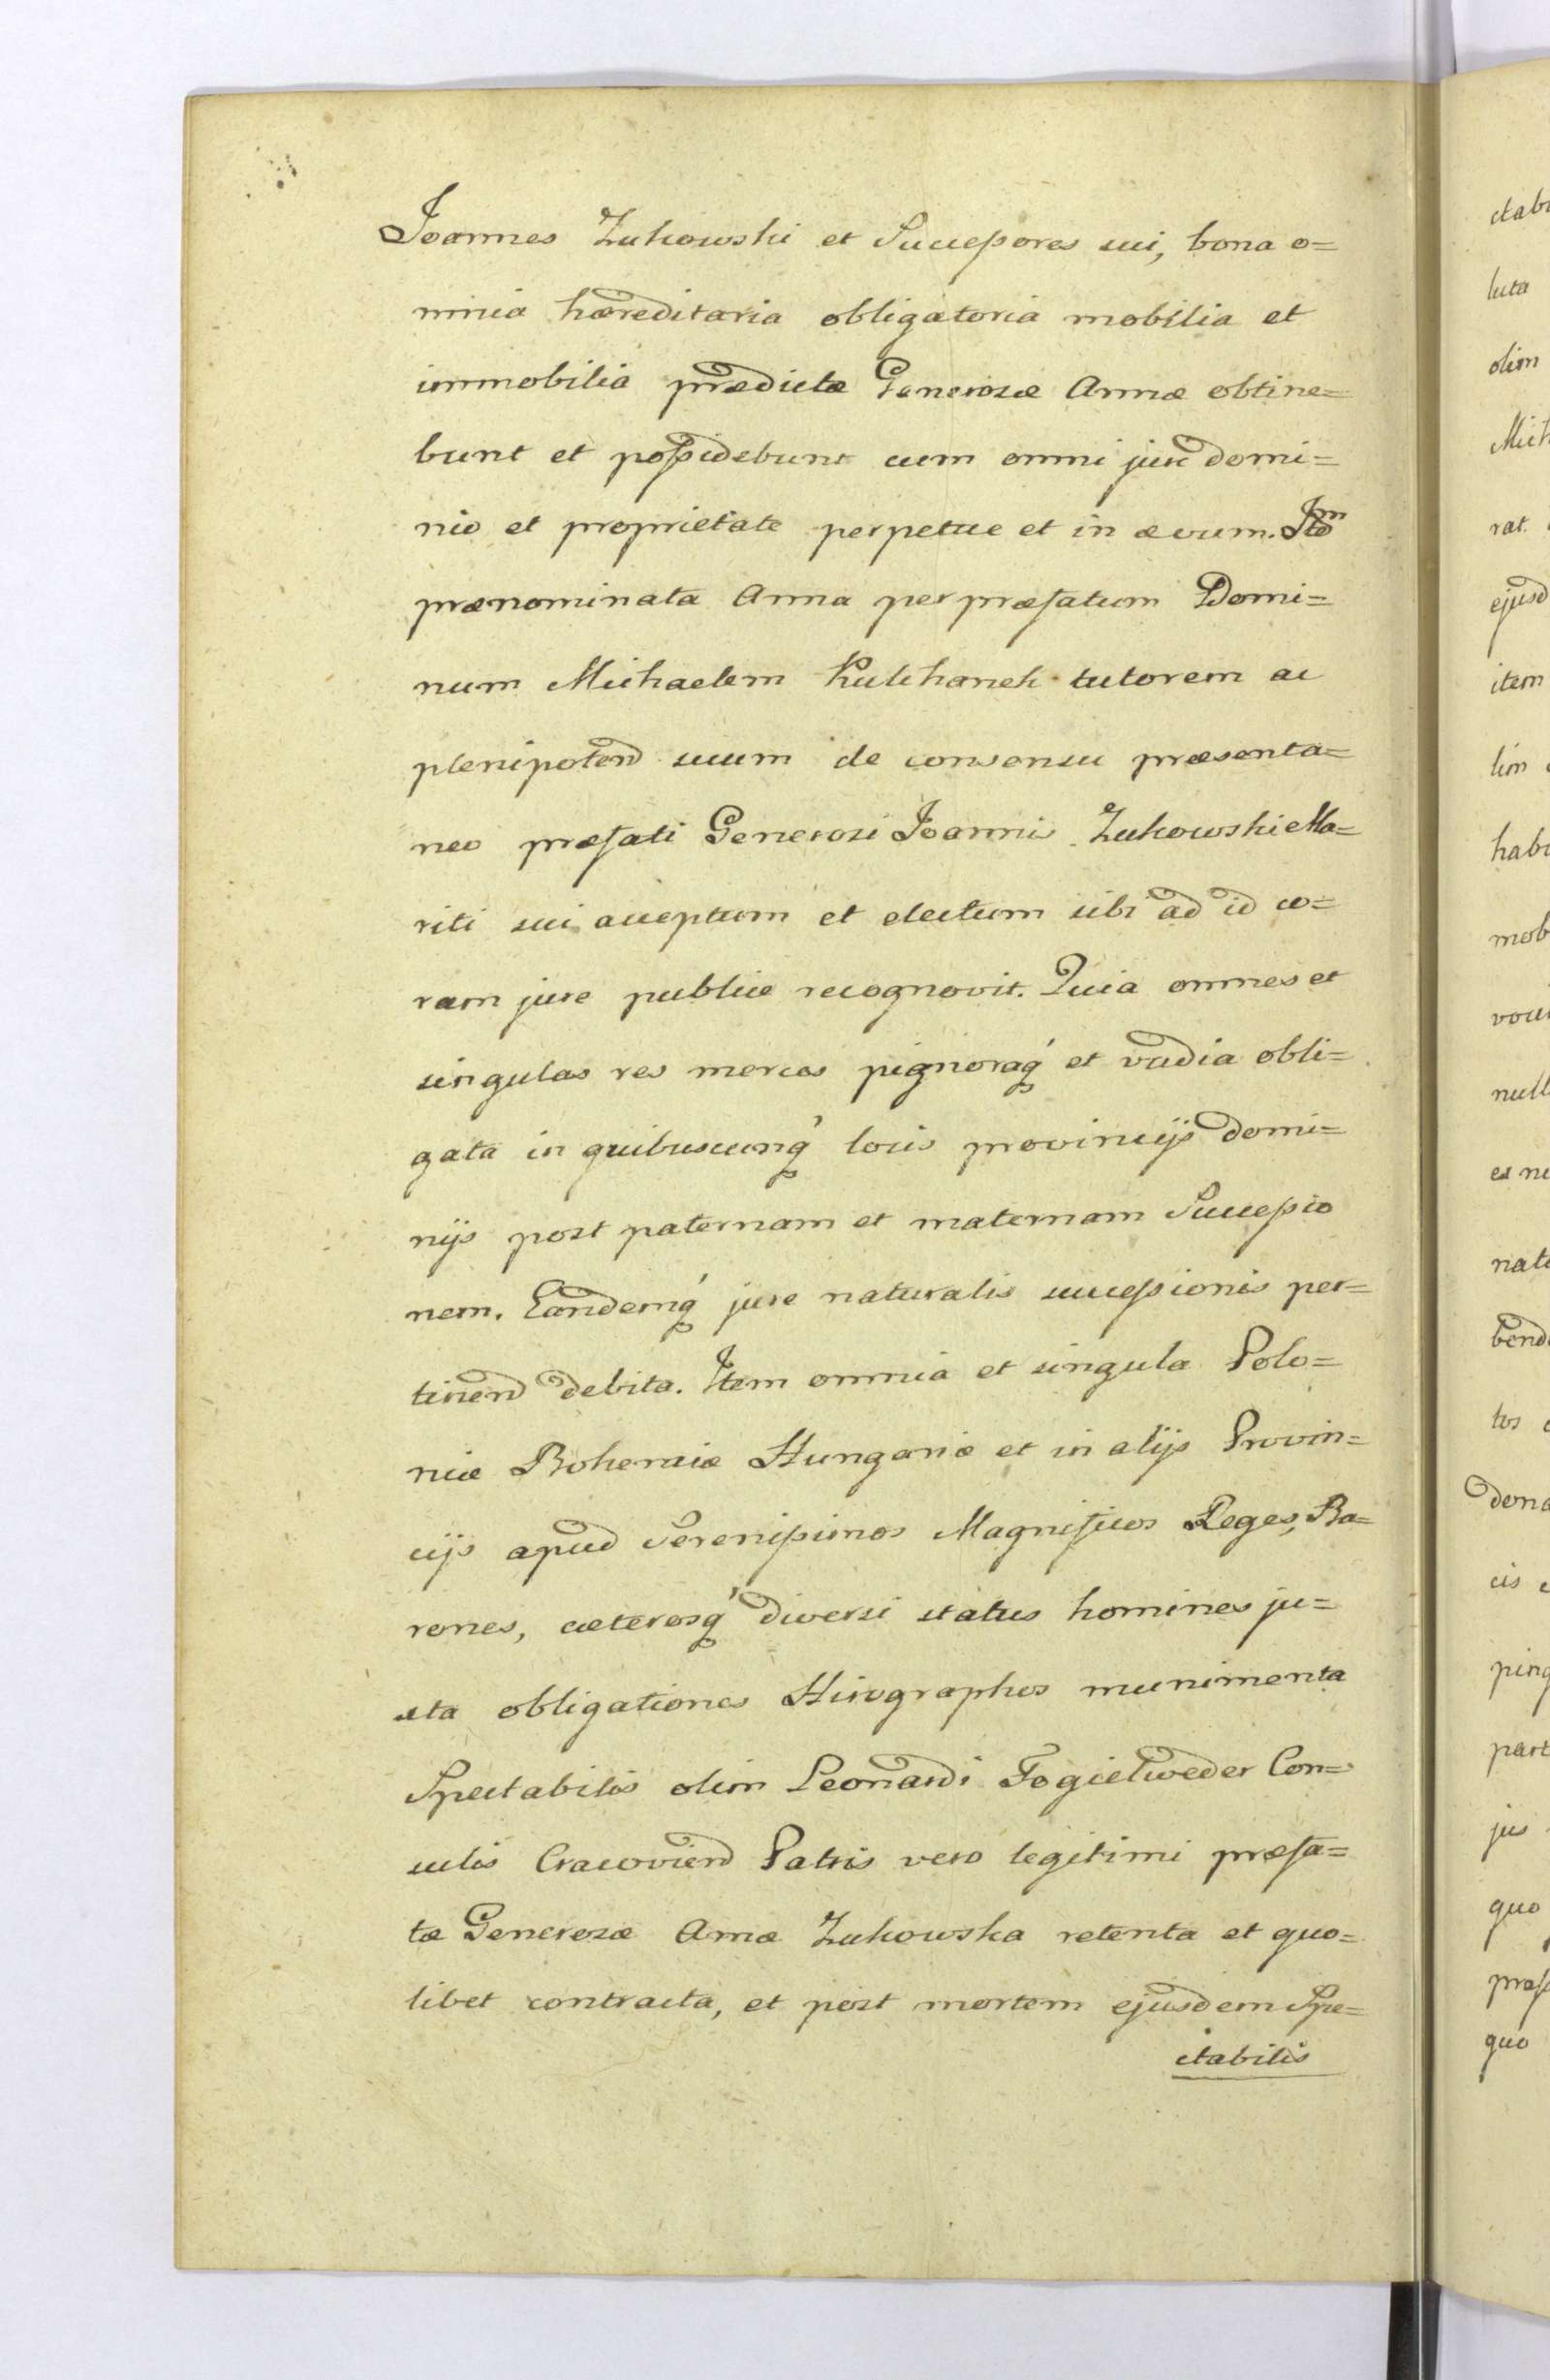 Joannes Zukowski et Successores sui, bona o=
mnia hæreditaria obligatoria mobilia et
immobilia prædictæ Generosæ Annæ obtine=
bunt et possidebunt cum omni jure domi=
nio et proprietate perpetue et in ævum. Itm
prænominata Anna per præfatum Domi=
num Michaelem Kulchanek tutorem ac
plenipotend suum de consensu præsenta=
neo præfati Generosi Joannis Zukowski Ma=
riti sui acceptum et electum sibi ad id co=
ram jure publice recognovit. Quia omnes et
singulas res merces pignoraq́ et vadia obli=
gata in quibuscunq́ locis provincijs domi=
nijs post paternam et maternam Successio
nem. Eandemq́ jure naturalis successionis per=
tinend debita. Item omnia et singula Polo=
niæ Bohemiæ Hungariæ et in alijs Provin=
cijs apud Serenissimos Magnificos Reges, Ba=
rones, cæterosq́ diversi status homines ju=
sta obligationes Hirographos munimenta
Spectabilis olim Leonardi Fogielweder Con=
sulis Cracoviend Patris vero legitimi præfa=
tæ Generosæ Annæ Zukowska retenta et quo=
libet contracta, et post mortem ejusdem Spe=
ctabilis
ctabi
luta
olim
Mich
rat.
ejusd
item
lim
habi
mob
null
et ne
nat
bend
tos
dona
cis
part
jus
quo
quo